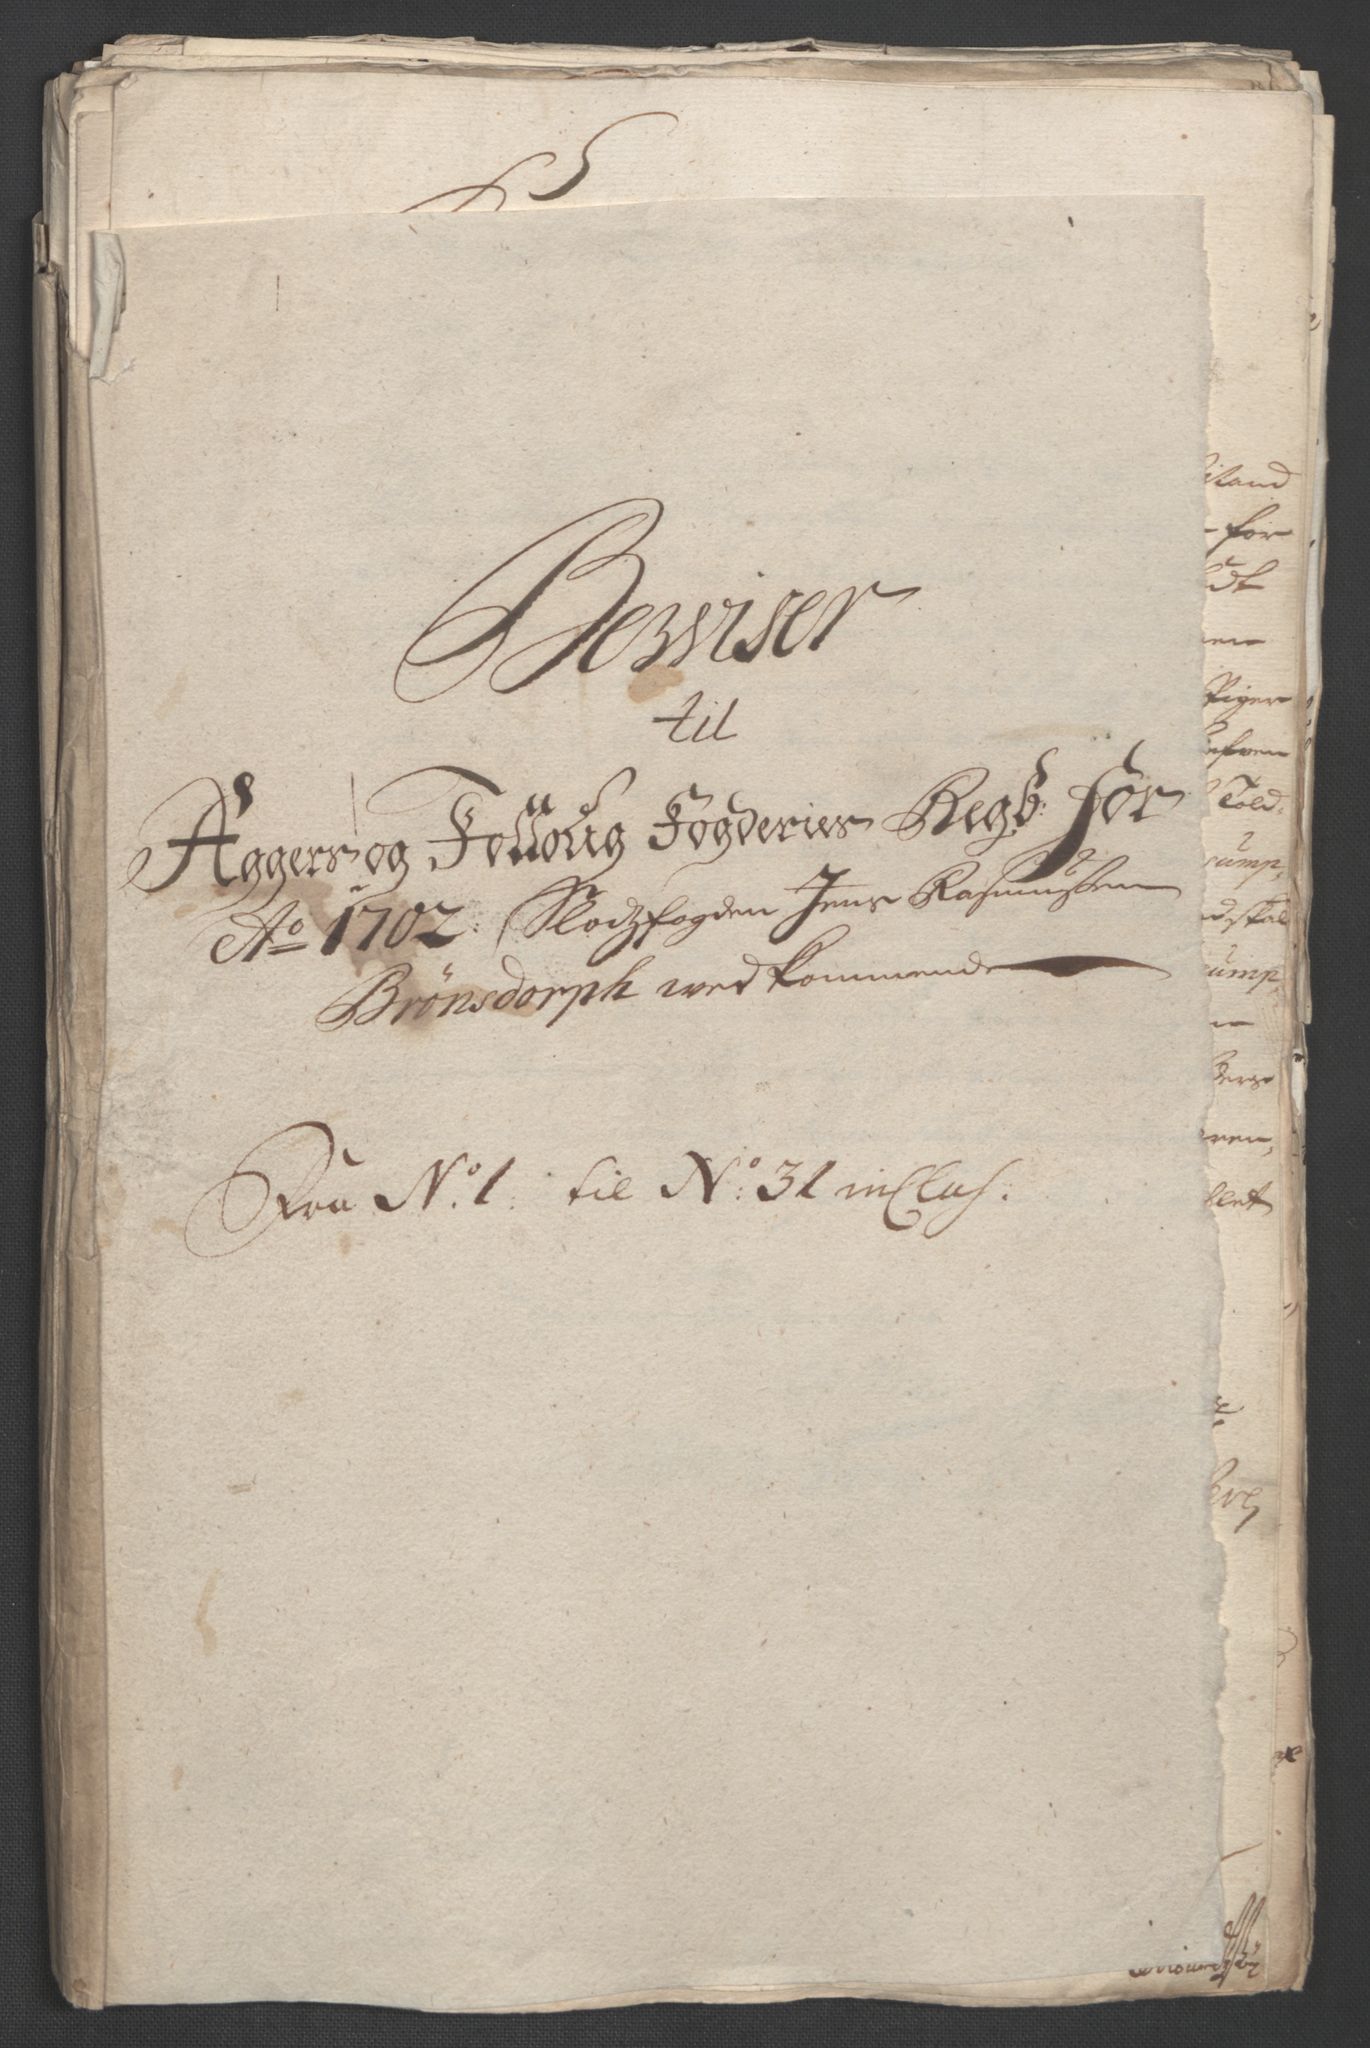 Bewiser
til
Aggers og Folloug Fogderies Regb: for
Ao 1702. Slotzfogden Jens Rasmussen
Brönsdorph wed kommende
Fra No: 1. til No: 31 inClus:
for
Told.